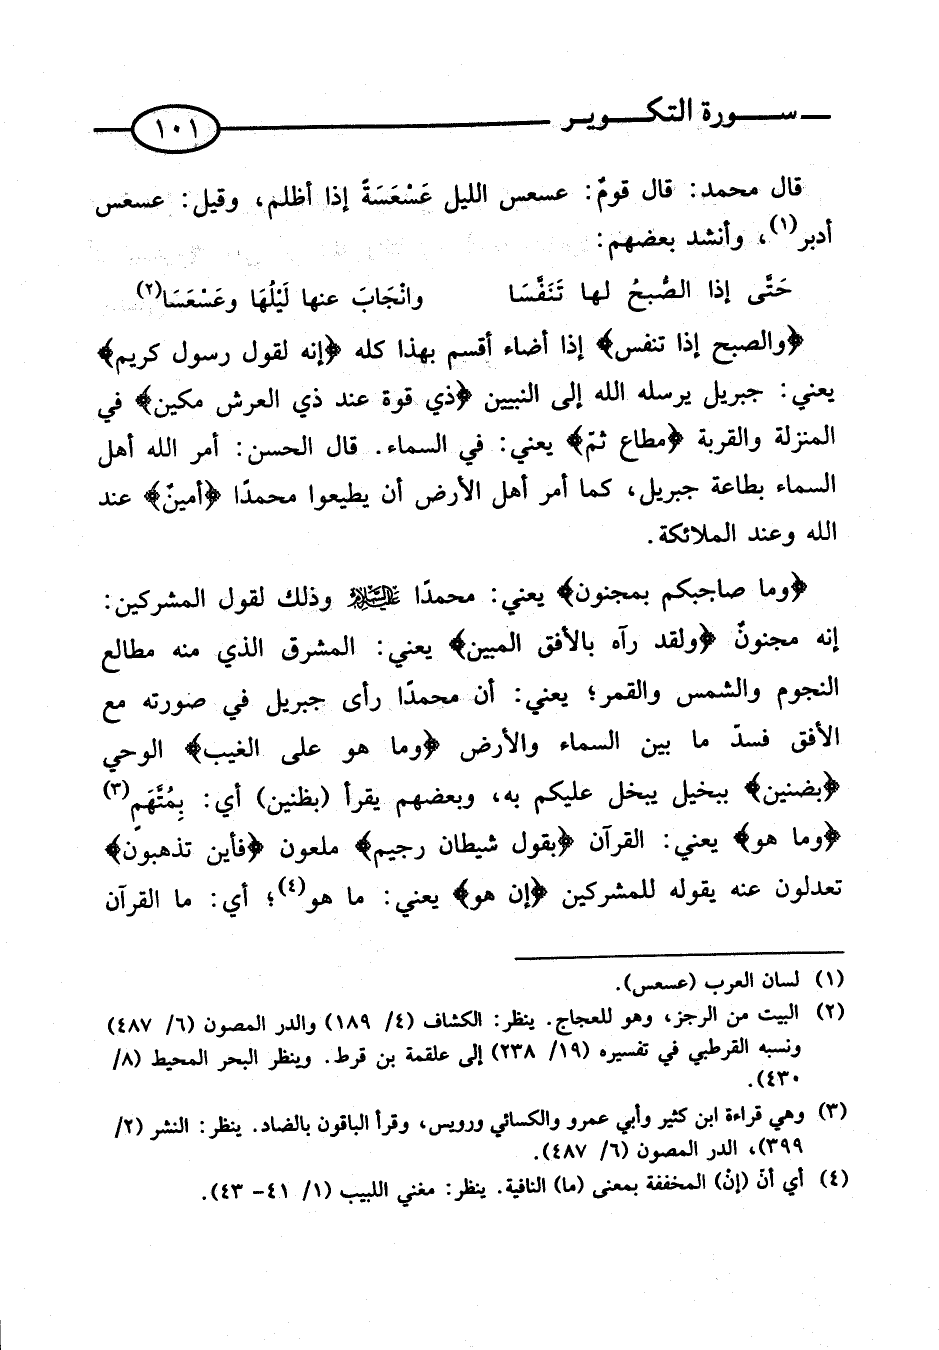 سورة التكوير
١٠١
قال محمد: قال قومٌ: عسعس الليل عَسْعَسَةً إذا أظلم، وقيل: عسعس
أدبر(١)، وأنشد بعضهم:
حَتَّى إذا الصُّبحُ لها تَنَفَّسَا وانْجَابَ عنها لَيْلُهَا وعَسْعَسَا(٢)
﴿والصبح إذا تنفس﴾ إذا أضاء أقسم بهذا كله ﴿إنه لقول رسول كريم﴾
يعني: جبريل يرسله الله إلى النبيين ﴿ذي قوة عند ذي العرش مكين﴾ في
المنزلة والقربة ﴿مطاع ثمّ﴾ يعني: في السماء. قال الحسن: أمر الله أهل
السماء بطاعة جبريل، كما أمر أهل الأرض أن يطيعوا محمدًا ﴿أمينٌ﴾ عند
الله وعند الملائكة.
﴿وما صاحبكم بمجنون﴾ يعني: محمدًا عليه السلام وذلك لقول المشركين:
إنه مجنونٌ ﴿ولقد رآه بالأفق المبين﴾ يعني: المشرق الذي منه مطالع
النجوم والشمس والقمر؛ يعني: أن محمدًا رأى جبريل في صورته مع
الأفق فسدّ ما بين السماء والأرض ﴿وما هو على الغيب﴾ الوحي
﴿بضنين﴾ ببخيل يبخل عليكم به، وبعضهم يقرأ (بظنين) أي: بِمُتَّهَمٍ(٣)
﴿وما هو﴾ يعني: القرآن ﴿بقول شيطان رجيم﴾ ملعون ﴿فأين تذهبون﴾
تعدلون عنه يقوله للمشركين ﴿إن هو﴾ يعني: ما هو(٤)؛ أي: ما القرآن
(١) لسان العرب (عسعس).
(٢) البيت من الرجز، وهو للعجاج. ينظر: الكشاف (٤/ ١٨٩) والدر المصون (٦/ ٤٨٧)
ونسبه القرطبي في تفسيره (١٩/ ٢٣٨) إلى علقمة بن قرط. وينظر البحر المحيط (٨/
٤٣٠).
(٣) وهي قراءة ابن كثير وأبي عمرو والكسائي ورويس، وقرأ الباقون بالضاد. ينظر: النشر (٢/
٣٩٩)، الدر المصون (٦/ ٤٨٧).
(٤) أي أنّ (إنْ) المخففة بمعنى (ما) النافية. ينظر: مغني اللبيب (١/ ٤١- ٤٣).